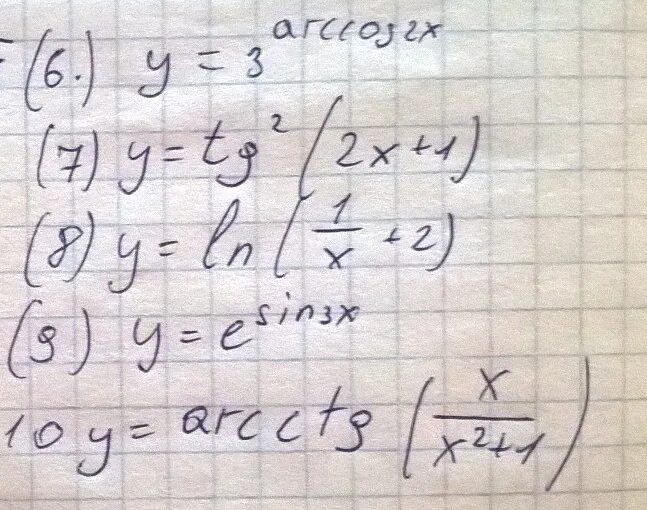 (6.) y = 3^arccos2x
(7) y = tg²(2x+1)
(8) y = ln(1/x + 2)
(9) y = e^sin3x
10 y = arcctg(x/(x²+1))